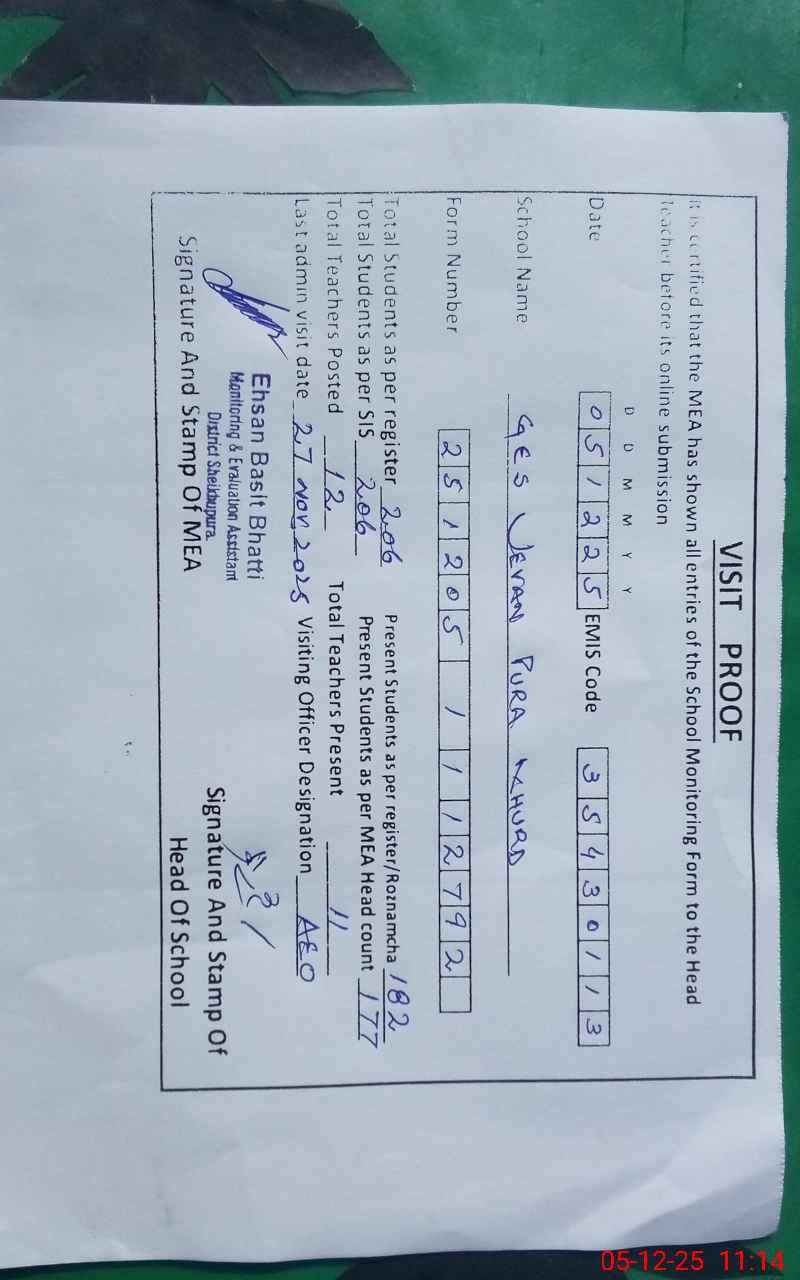 VISIT PROOF
It is certified that the MEA has shown all entries of the School Monitoring Form to the Head
Teacher before its online submission
D D M M Y Y
Date 0 5 1 2 2 5 EMIS Code 3 5 4 3 0 1 1 3
School Name GES JEVAN PURA KHURD
Form Number 2 5 1 2 0 5 1 1 1 2 7 9 2
Total Students as per register 206 Present Students as per register/Roznamcha 182
Total Students as per SIS 206 Present Students as per MEA Head count 177
Total Teachers Posted 12 Total Teachers Present 11
Last admin visit date 27 Nov 2025 Visiting Officer Designation AEO
Ehsan Basit Bhatti
Monitoring & Evaluation Assistant
District Sheikhupura
Signature And Stamp Of MEA
Signature And Stamp Of
Head Of School
05-12-25 11:14